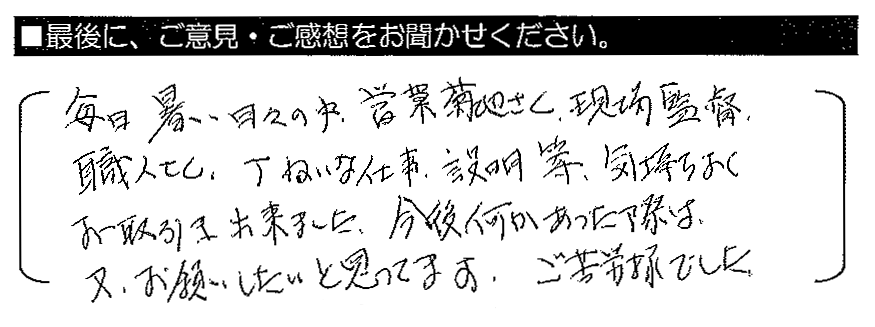 ■最後に、ご意見・ご感想をお聞かせください。
毎日 暑い日々の中、営業菊地さん、現場監督、
職人さん、丁ねいな仕事、説明等、気持ちよく
お取引き出来ました。今後何かあった際は、
又、お願いしたいと思ってます。ご苦労様でした。